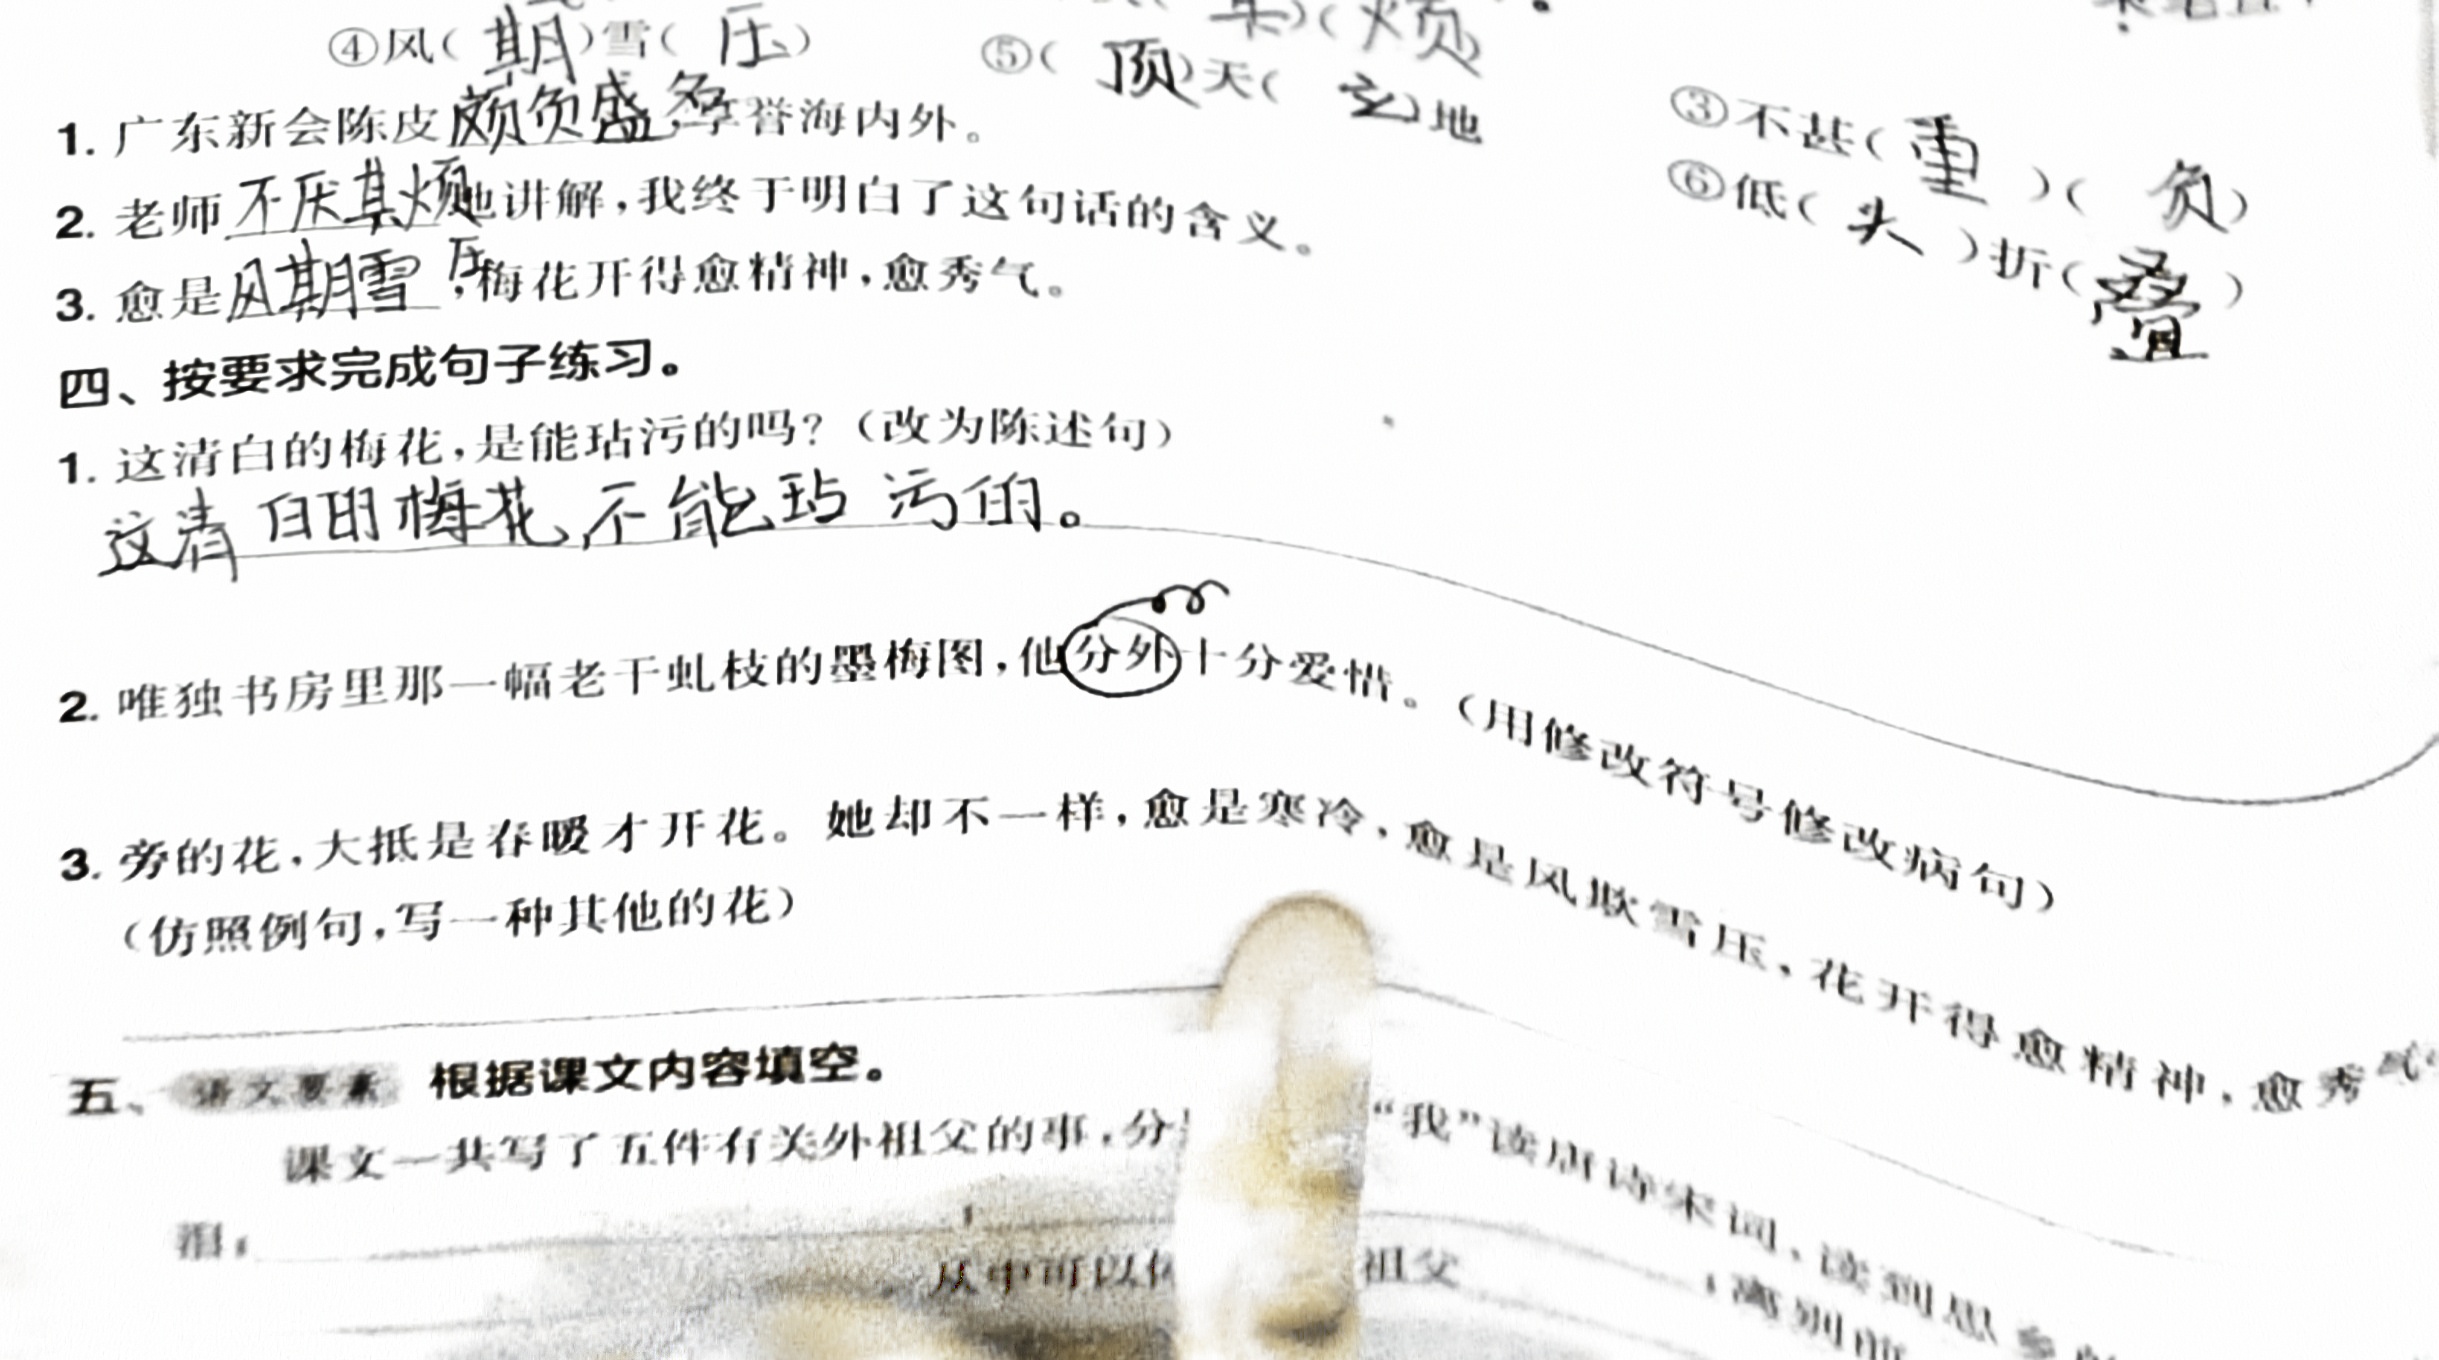 ④风(期)雪(压)
⑤(顶)天(立)地
③不甚(重)(负)
⑥低(头)折(叠)
1. 广东新会陈皮颇负盛名,享誉海内外。
2. 老师不厌其烦地讲解,我终于明白了这句话的含义。
3. 愈是风期雪压,梅花开得愈精神,愈秀气。
四、按要求完成句子练习。
1. 这清白的梅花,是能玷污的吗?(改为陈述句)
这清白的梅花,不能玷污的。
2. 唯独书房里那一幅老干虬枝的墨梅图,他分外十分爱惜。(用修改符号修改病句)
3. 旁的花,大抵是春暖才开花。她却不一样,愈是寒冷,愈是风欺雪压,花开得愈精神,愈秀气
(仿照例句,写一种其他的花)
五、语文要素 根据课文内容填空。
课文一共写了五件有关外祖父的事,分 “我”读唐诗宋词,读到思
泪;
从中可以 祖父 ;离别前